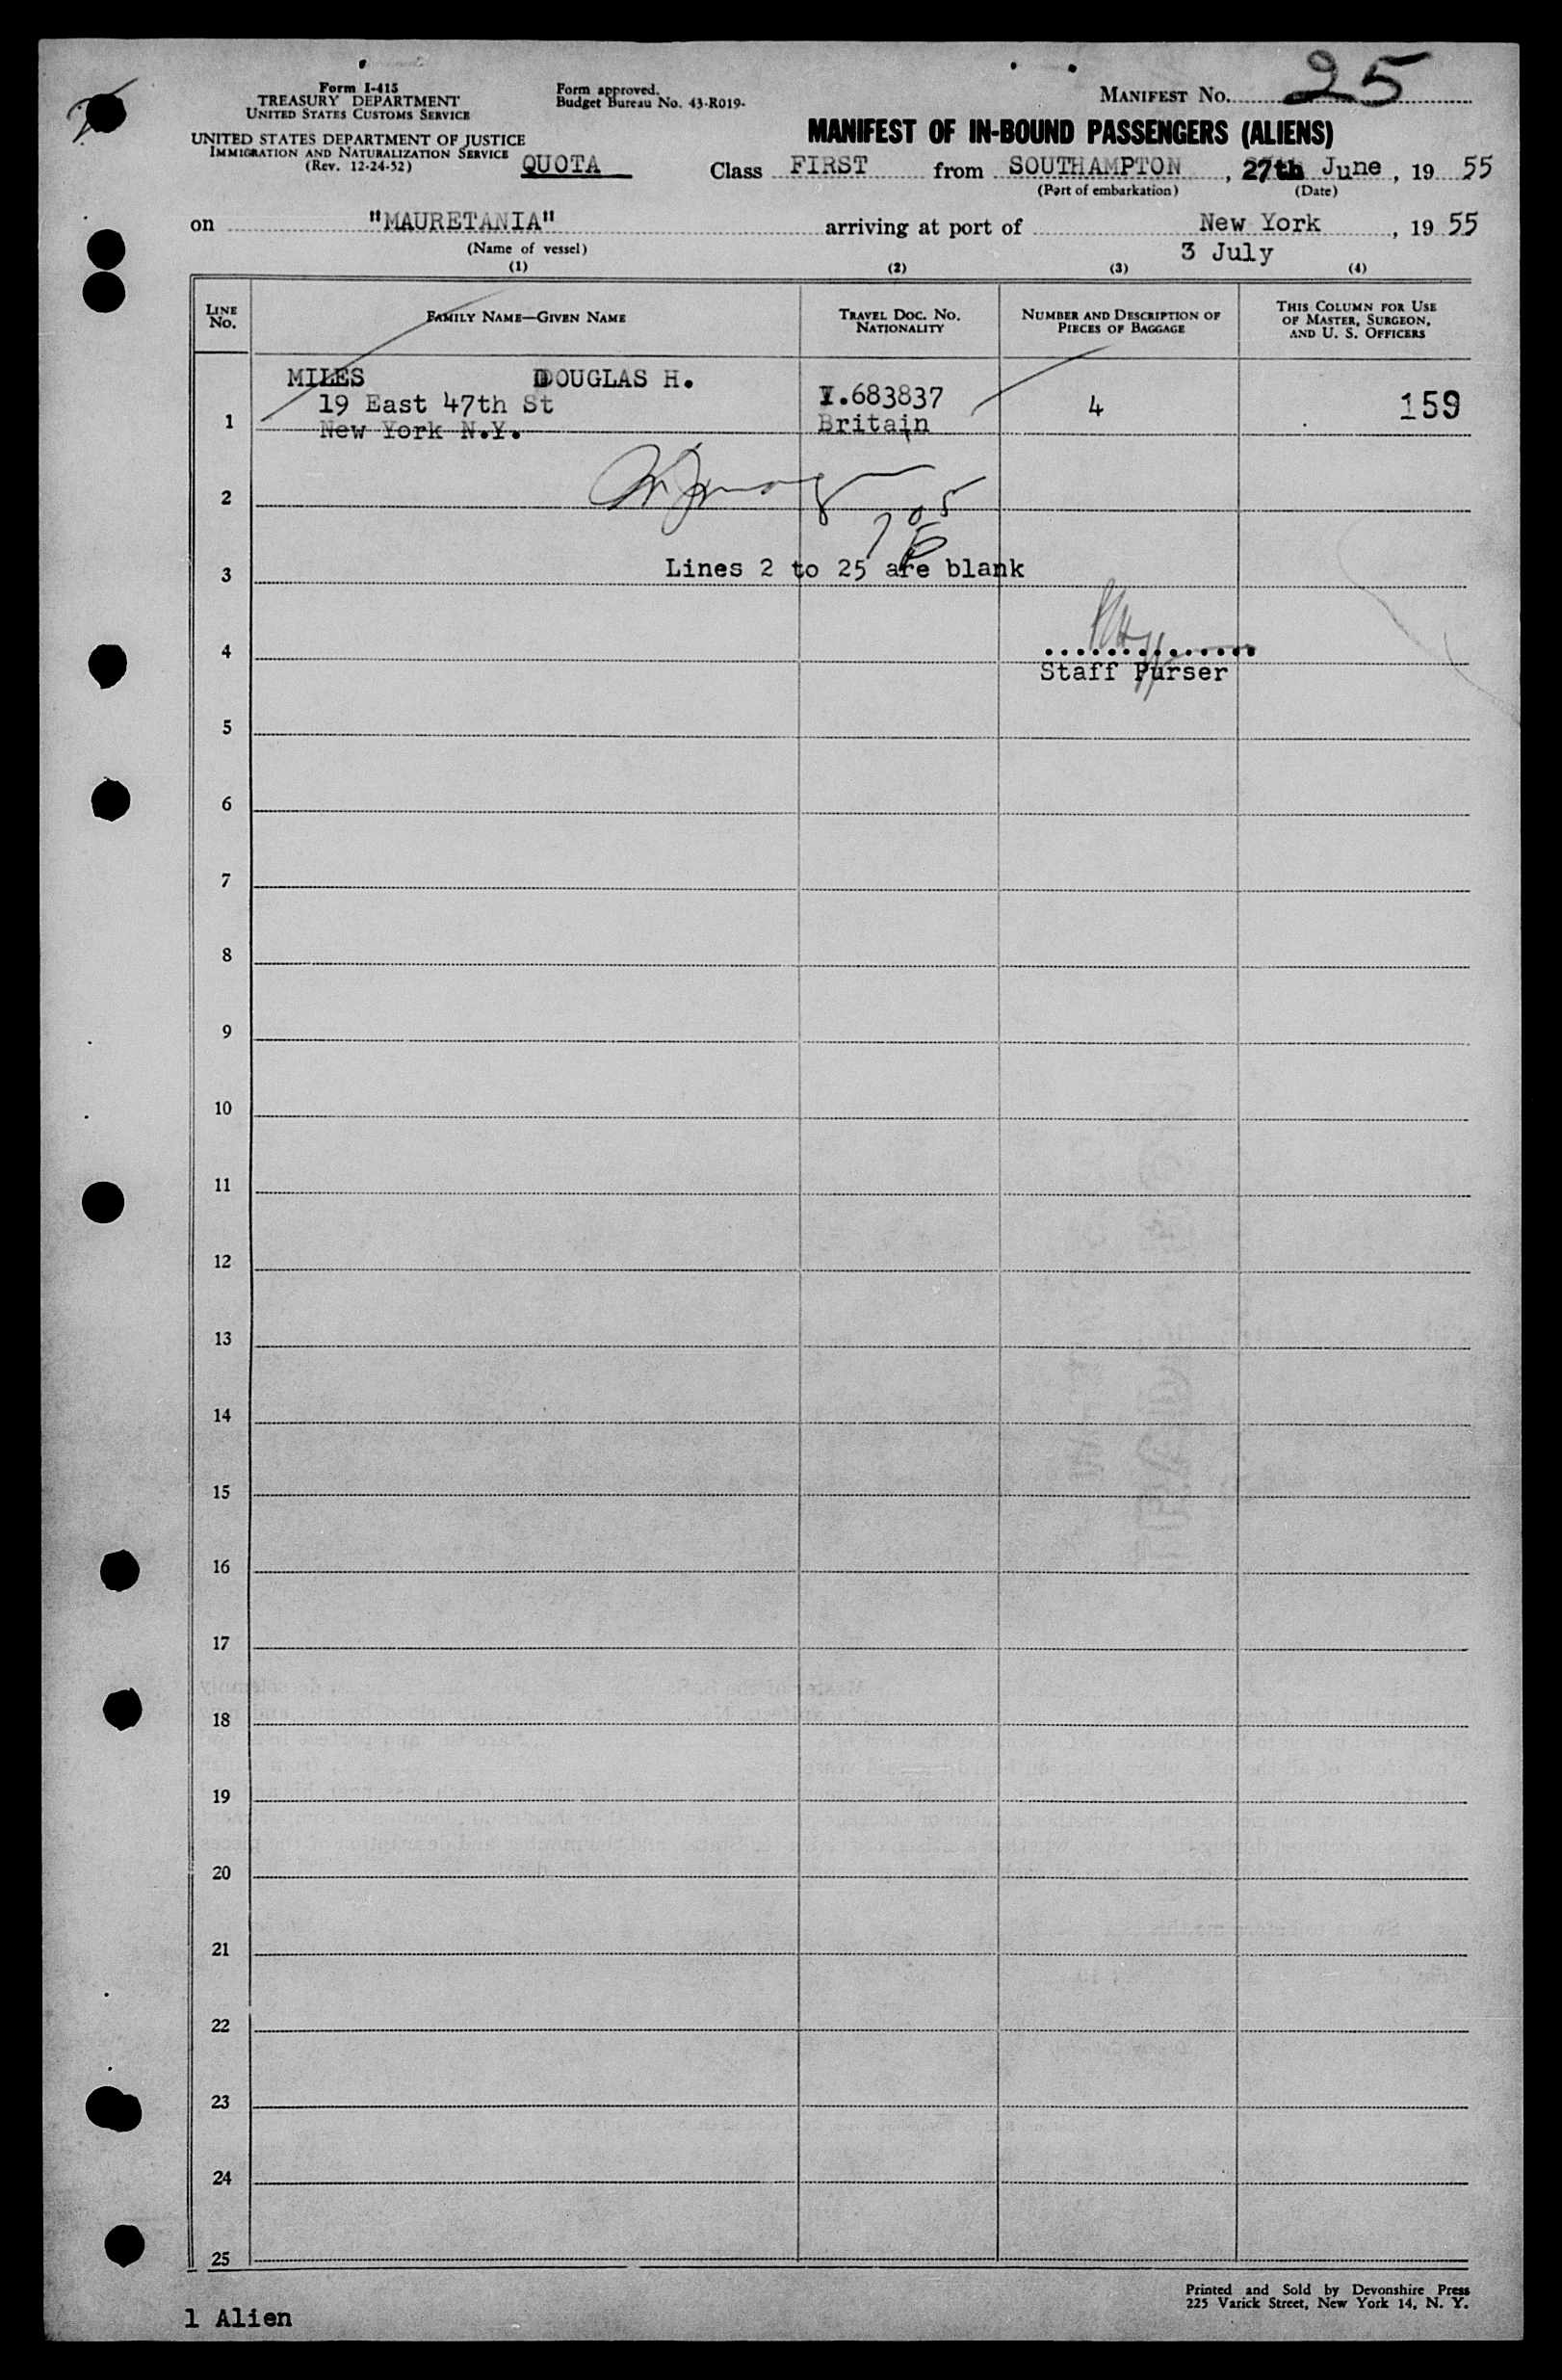 Form I-415
TREASURY DEPARTMENT
UNITED STATES CUSTOMS SERVICE
UNITED STATES DEPARTMENT OF JUSTICE
IMMIGRATION AND NATURALIZATION SERVICE
(Rev. 12-24-52)
Form approved.
Budget Bureau No. 43-R019-
MANIFEST NO. 25
MANIFEST OF IN-BOUND PASSENGERS (ALIENS)
QUOTA Class FIRST from SOUTHAMPTON, 27th June, 19 55
(Port of embarkation) (Date)
on "MAURETANIA" arriving at port of New York, 19 55
(Name of vessel) 3 July
(1) (2) (3) (4)
LINE No. FAMILY NAME—GIVEN NAME TRAVEL DOC. NO. NATIONALITY NUMBER AND DESCRIPTION OF PIECES OF BAGGAGE THIS COLUMN FOR USE OF MASTER, SURGEON, AND U. S. OFFICERS
MILES DOUGLAS H.
19 East 47th St .683837 4 159
1 New York N.Y. Britain
2
705
3 Lines 2 to 25 are blank
4
Staff Purser
5
6
7
8
9
10
11
12
13
14
15
16
17
18
19
20
21
22
23
24
25
Printed and Sold by Devonshire Press
225 Varick Street, New York 14, N. Y.
1 Alien